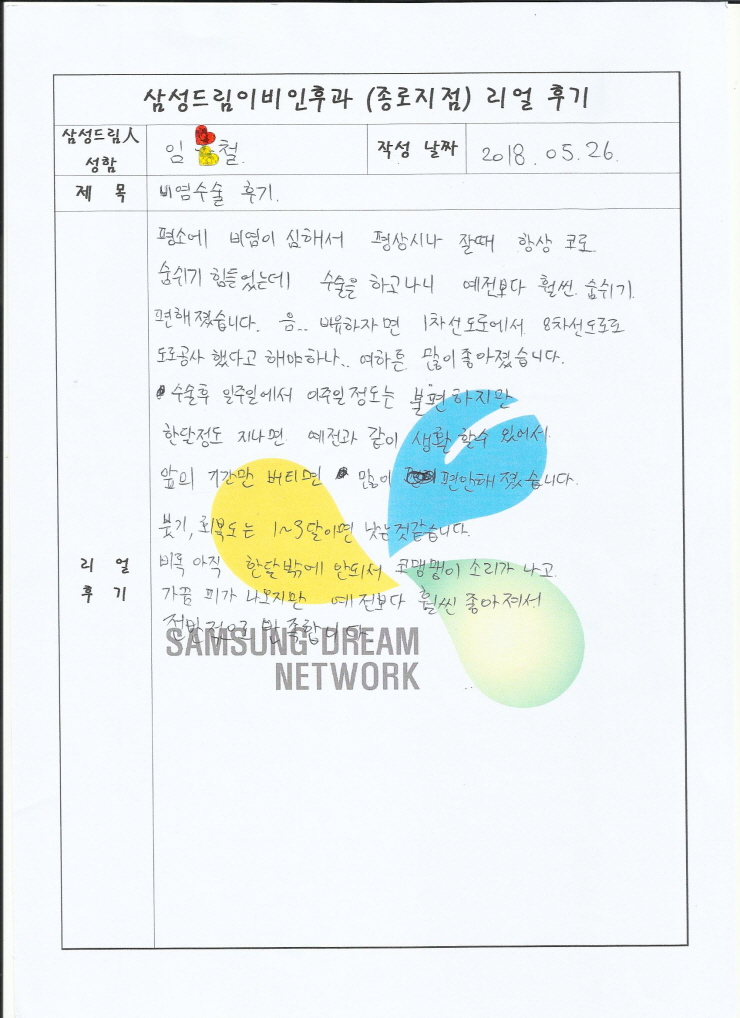 삼성드림이비인후과 (종로지점) 리얼 후기
삼성드림人 성함
임 철.
작성 날짜
2018. 05. 26.
제 목
비염수술 후기.
리 얼 후 기
평소에 비염이 심해서 평상시나 잘때 항상 코로
숨쉬기 힘들었는데 수술을 하고나니 예전보다 훨씬 숨쉬기
편해졌습니다. 음.. 비유하자면 1차선도로에서 8차선도로로
도로공사 했다고 해야하나.. 여하튼 많이 좋아졌습니다.
수술후 일주일에서 이주일 정도는 불편하지만
한달정도 지나면 예전과 같이 생활 할수 있어서
앞의 기간만 버티면 많이 편안해졌습니다.
붓기, 회복도는 1~3달이면 낫는것같습니다.
비록 아직 한달밖에 안되서 코맹맹이 소리가 나고
가끔 피가 나오지만 예전보다 훨씬 좋아져서
전반적으로 만족합니다.
SAMSUNG DREAM
NETWORK